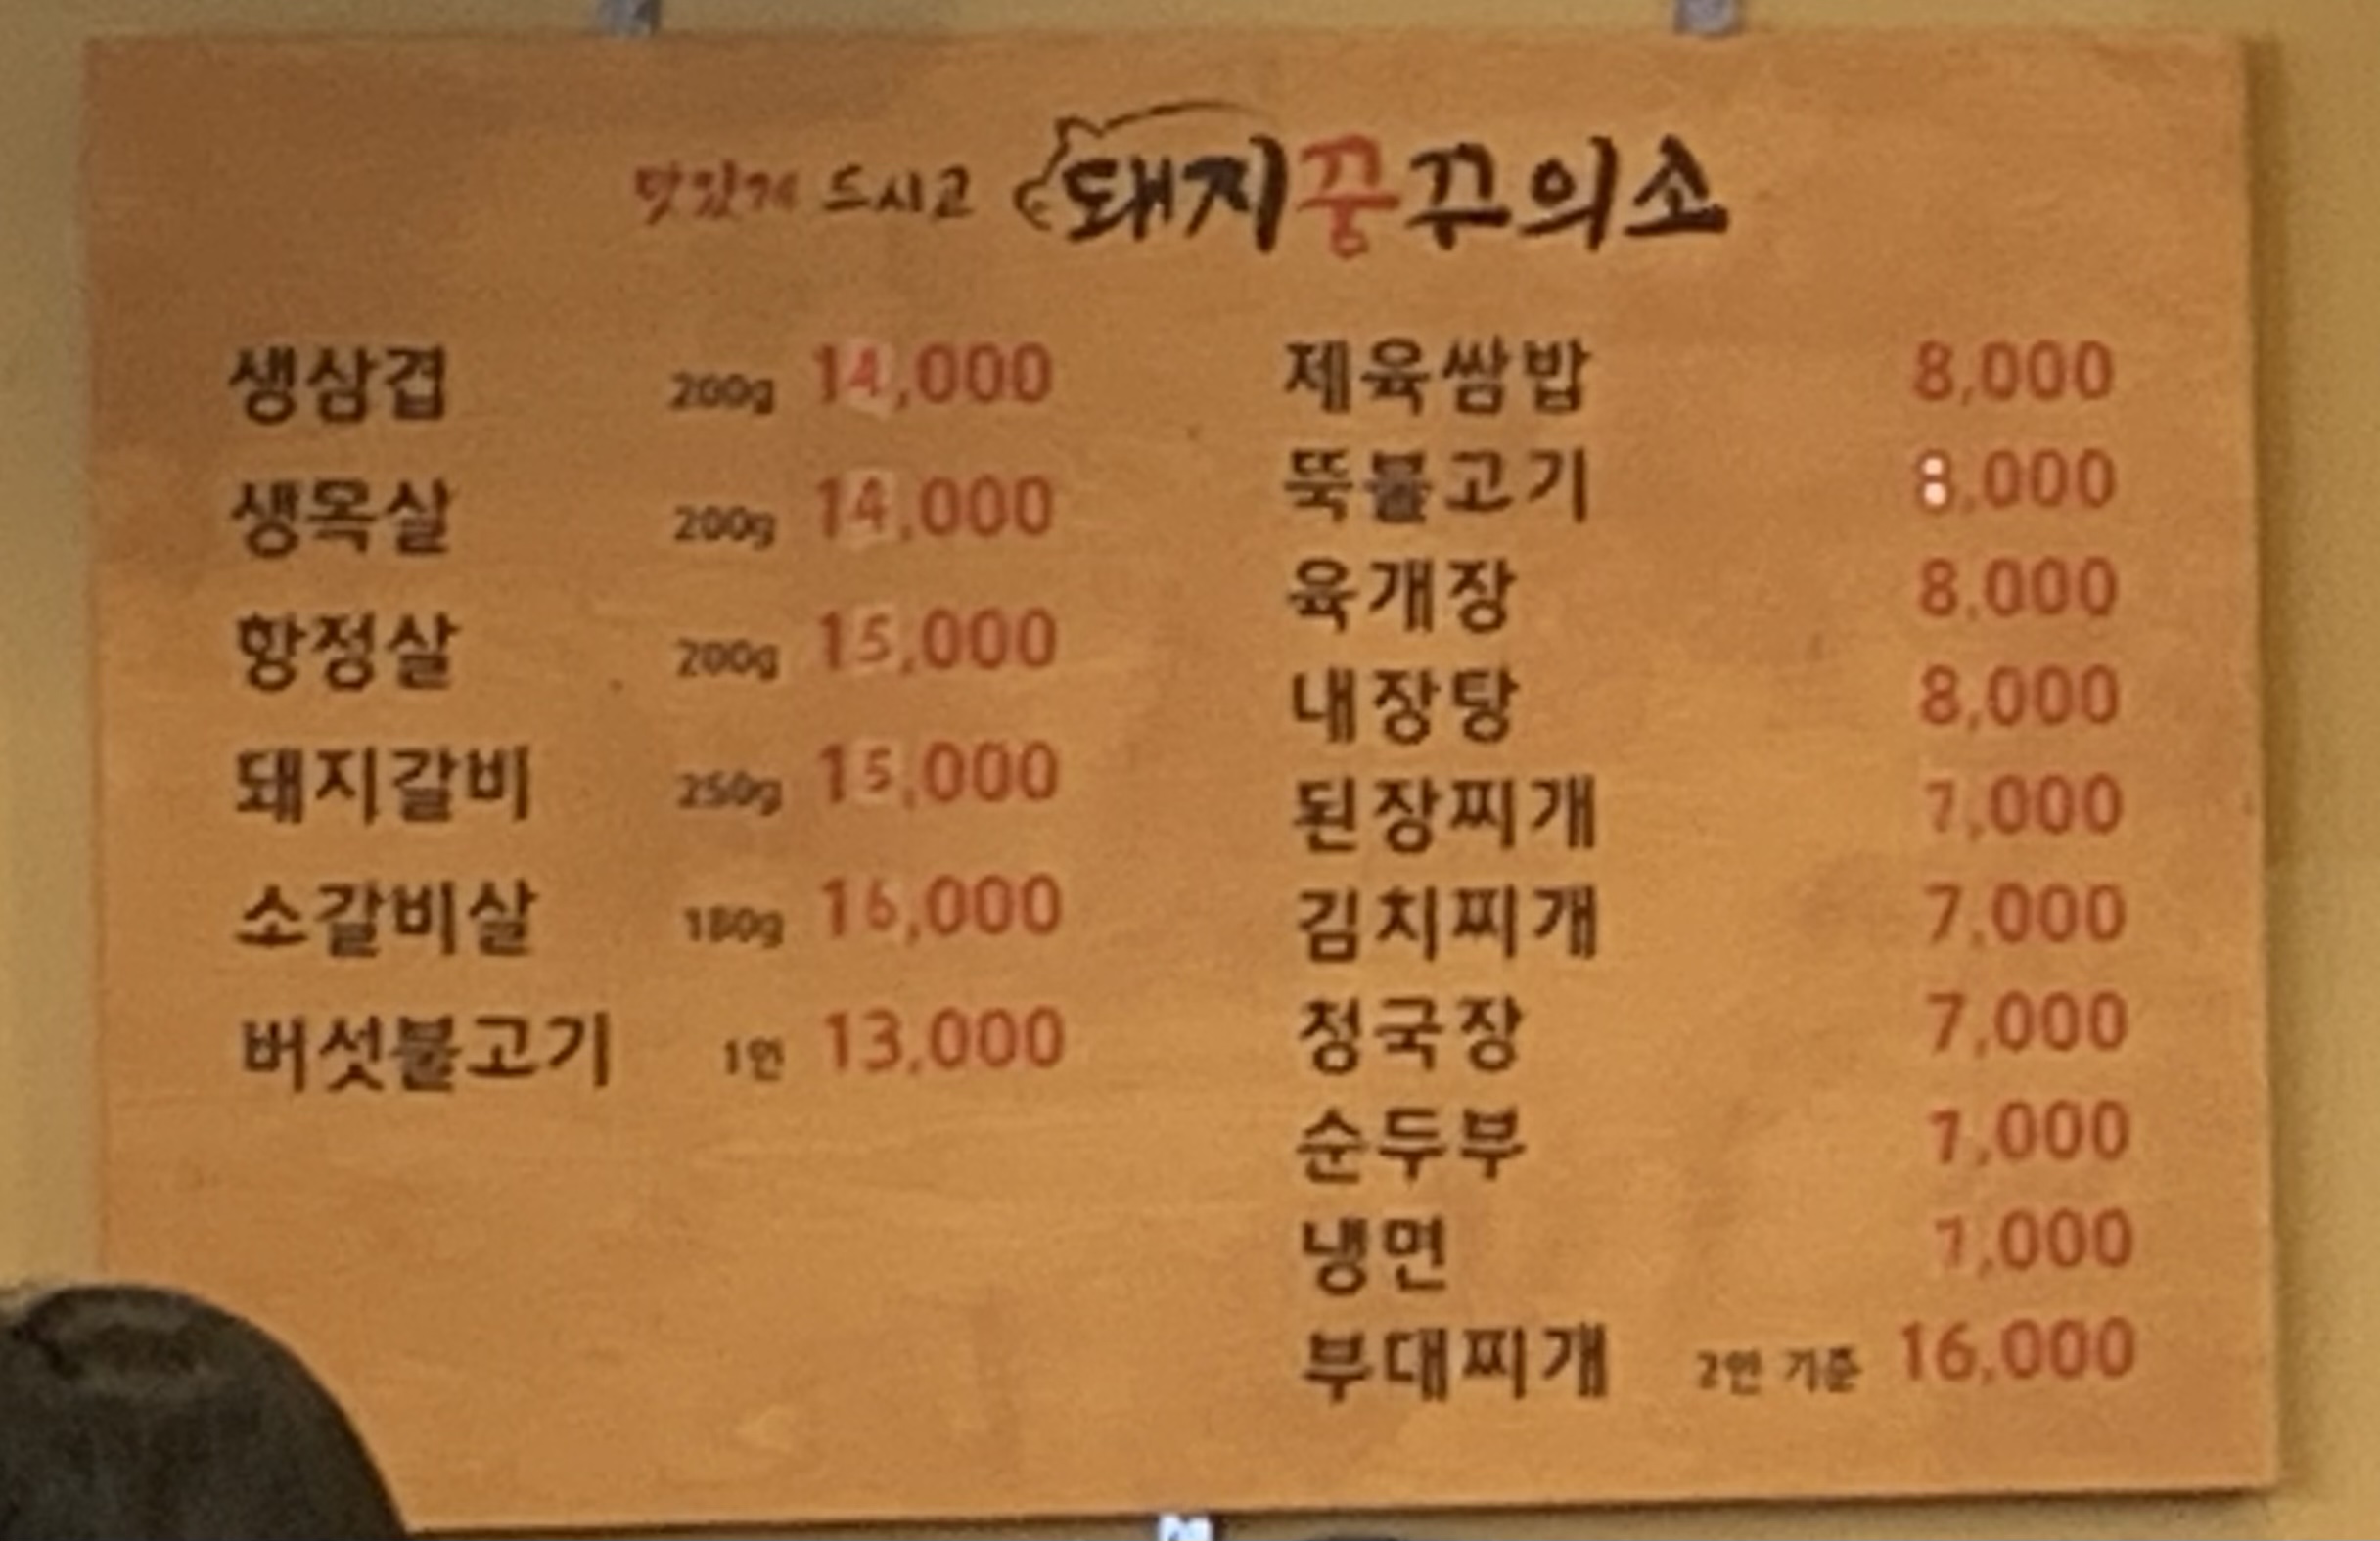 맛있게 드시고 돼지꿍꾸의소
생삼겹 200g 14,000
생목살 200g 14,000
항정살 200g 15,000
돼지갈비 250g 15,000
소갈비살 180g 16,000
버섯불고기 1인 13,000
제육쌈밥 8,000
뚝불고기 8,000
육개장 8,000
내장탕 8,000
된장찌개 7,000
김치찌개 7,000
청국장 7,000
순두부 7,000
냉면 7,000
부대찌개 2인 기준 16,000